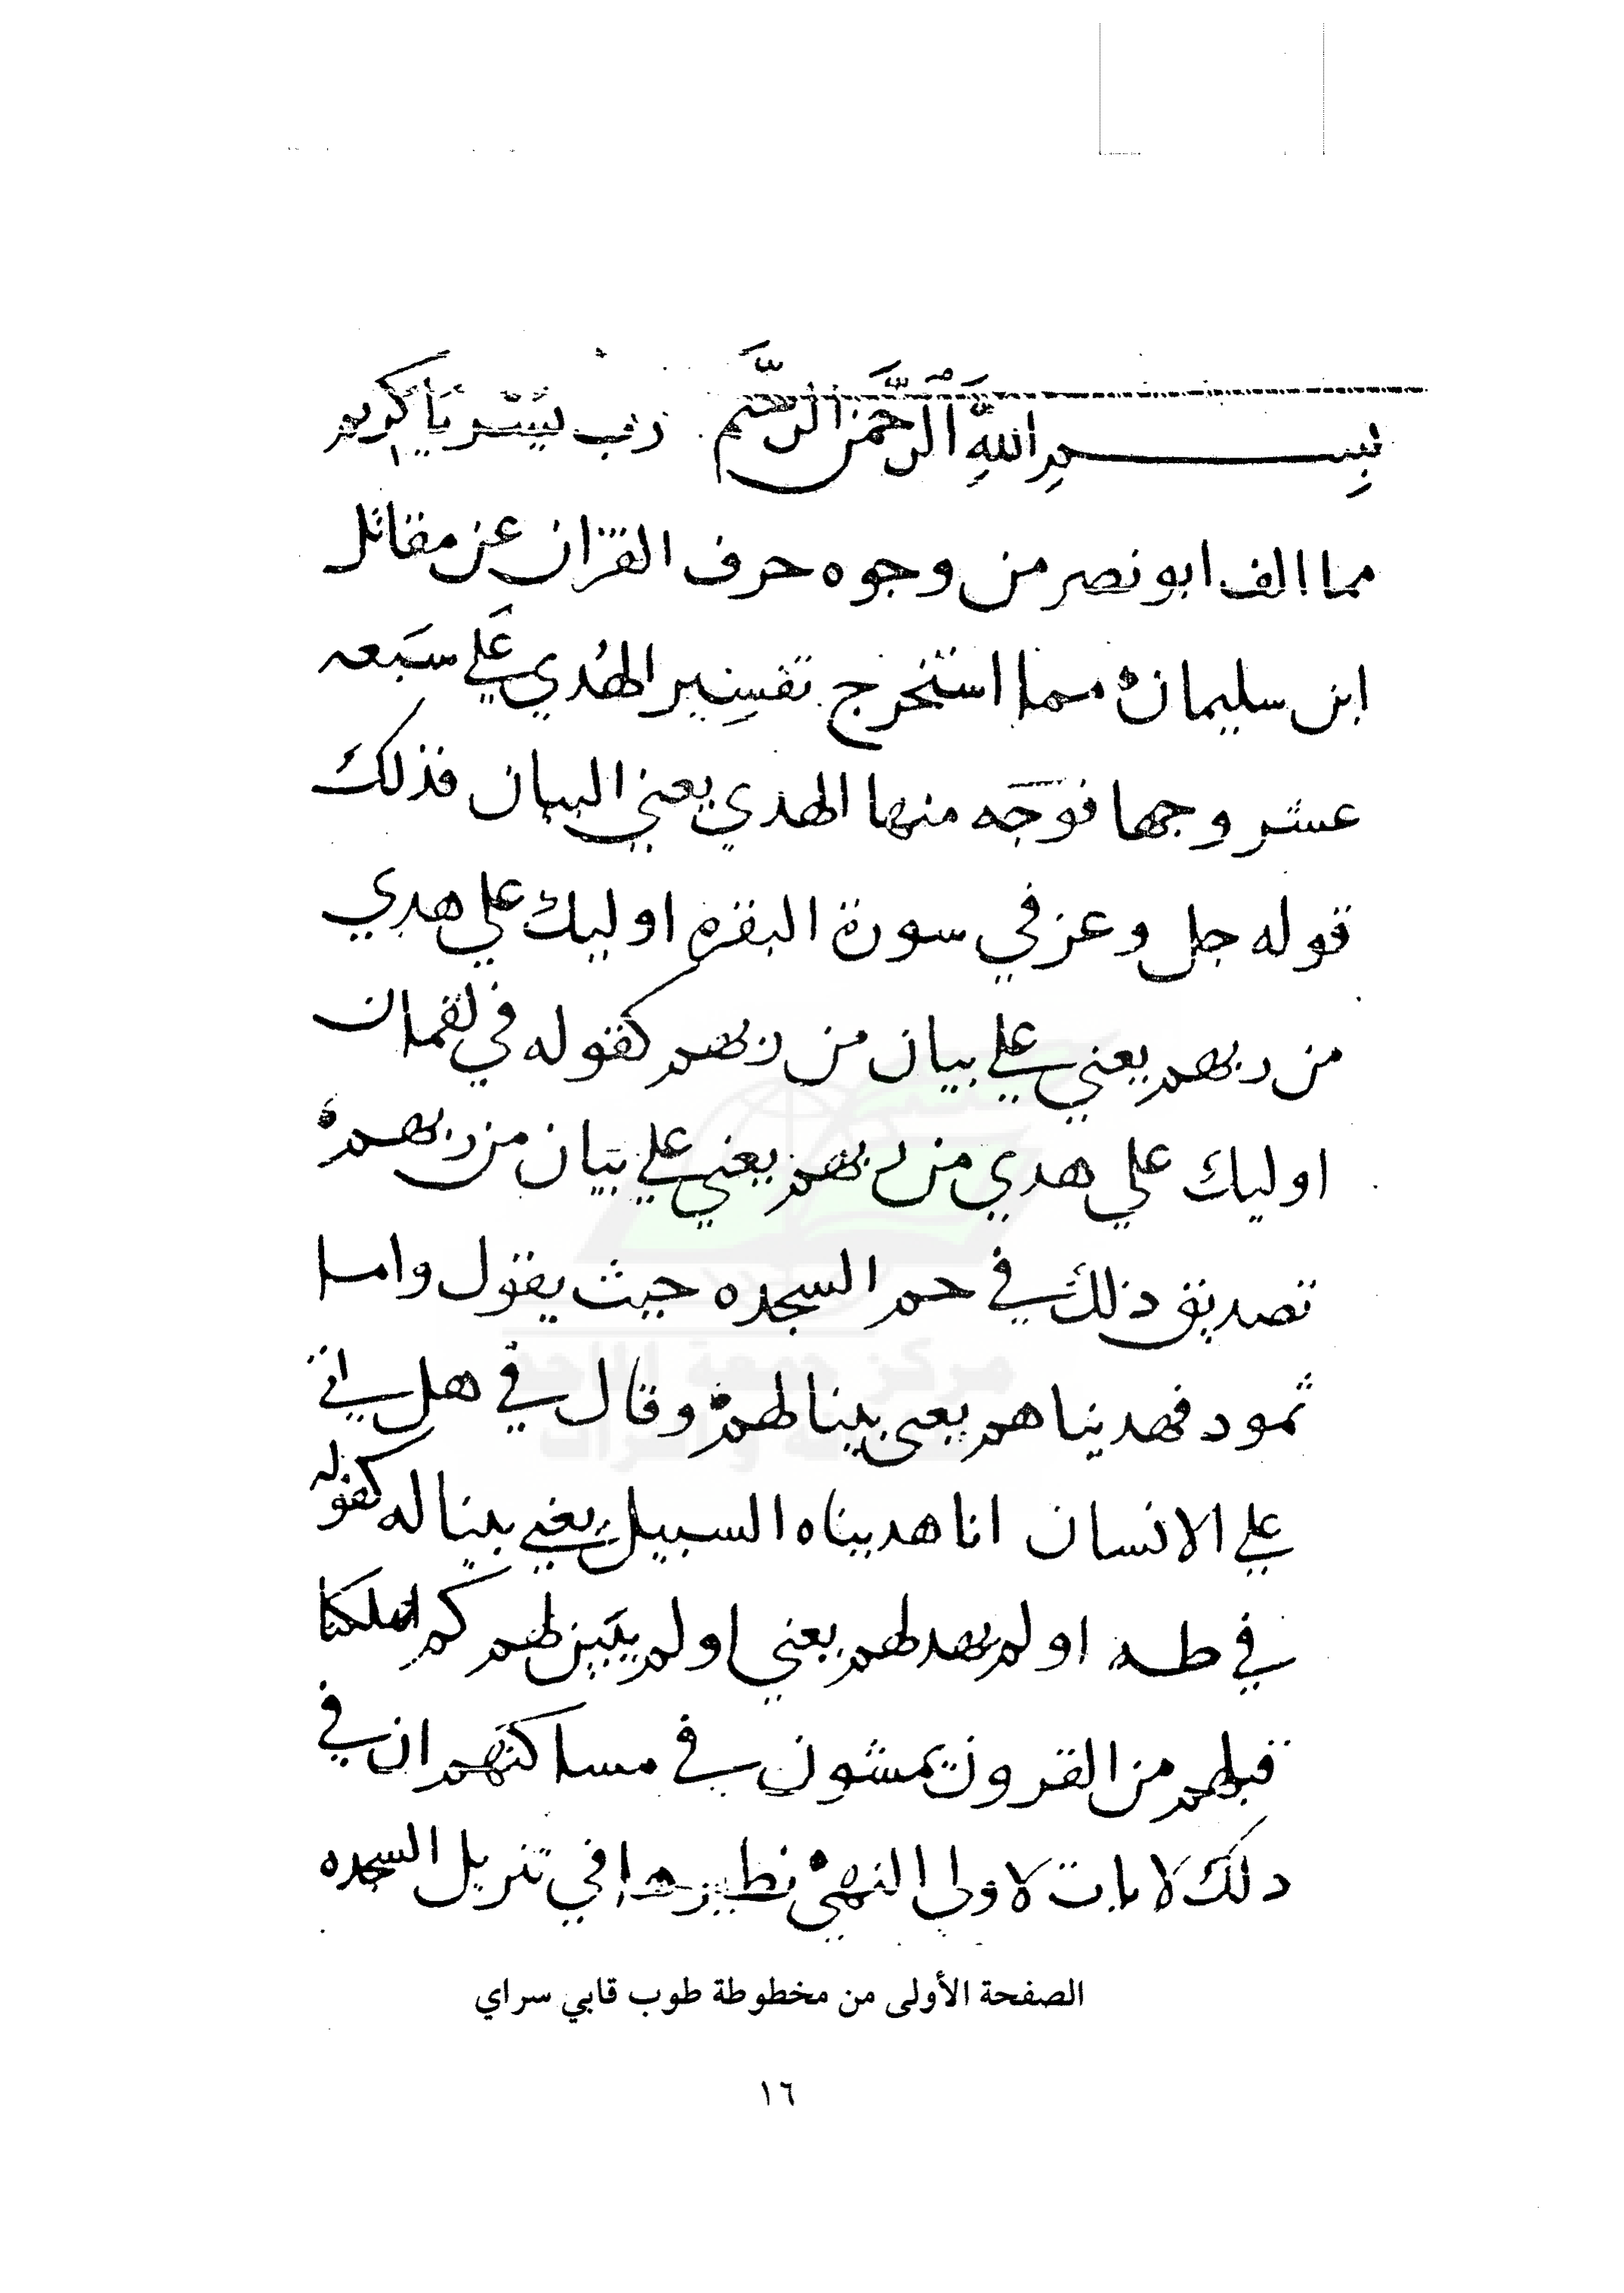 بِسمِ اللَّهِ الرَّحْمَنِ الرَّحِيمِ رب يَسّر يَا كريم
مما الف ابو نصر من وجوه حرف القران عن مقاتل
ابن سليمان مما استخرج تفسير الهُدي عَلي سَبعه
عشر وجها فوَجَه منها الهدي يعني البيان فذلك
قوله جل وعز في سورة البقره اوليك علي هدي
من ربهم يعني علي بيان من ربهم كقوله في لقمان
اوليك علي هدي من ربهم يعني علي بيَان من ربهم
تصديق ذلك في حم السجده حيث يقول واما
ثمود فهديناهم يعني بينا لهم وقال في هل اتي
علي الانسان انا هديناه السبيل يعني بينا له كقوله
في طه اولم يهد لهم يعني اولم يبَين لهم كم اهلكنا
قبلهم من القرون يمشون في مساكنهم ان في
ذلك لايات لاولي النهي نظيرها في تنزيل السجده
الصفحة الأولى من مخطوطة طوب قابي سراي
١٦